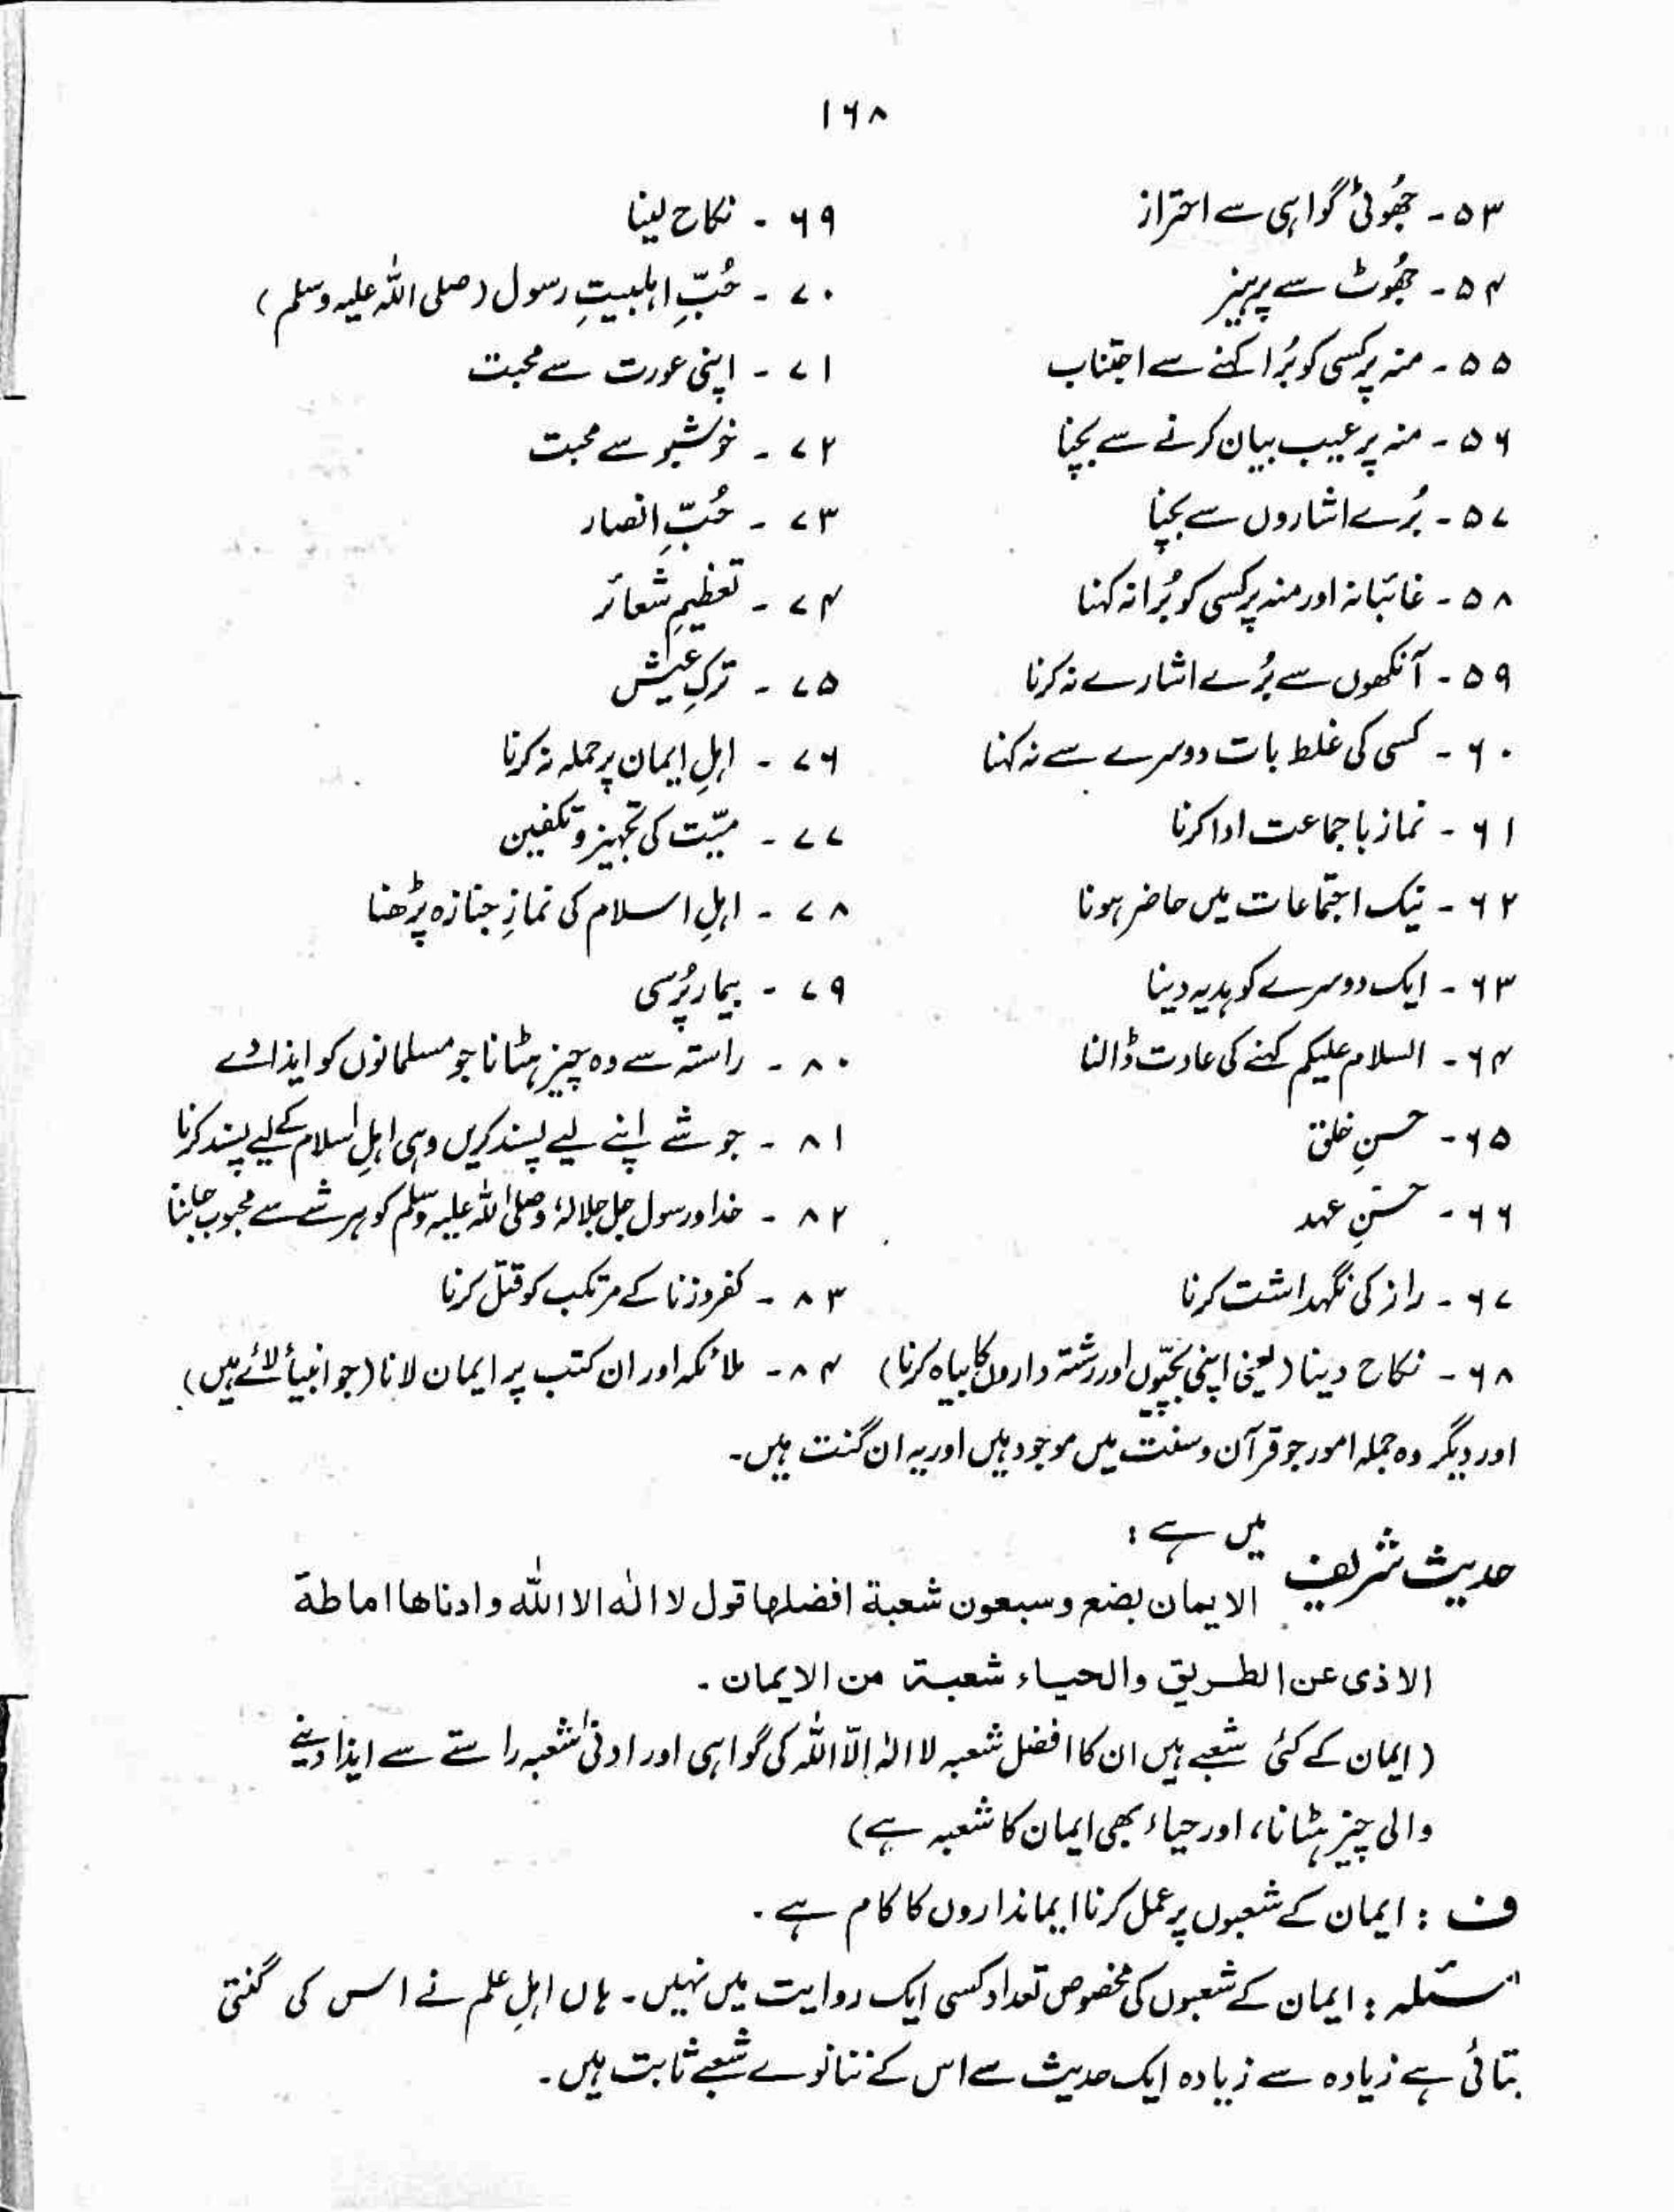 ۱۶۸
۵۳ - جھُوٹی گواہی سے احتراز
۵۴ - جھُوٹ سے پرہیز
۵۵ - منہ پر کسی کو بُرا کہنے سے اجتناب
۵۶ - منہ پر عیب بیان کرنے سے بچنا
۵۷ - بُرے اشاروں سے بچنا
۵۸ - غائبانہ اور منہ پر کسی کو بُرا نہ کہنا
۵۹ - آنکھوں سے بُرے اشارے نہ کرنا
۶۰ - کسی کی غلط بات دوسرے سے نہ کہنا
۶۱ - نماز باجماعت ادا کرنا
۶۲ - نیک اجتماعات میں حاضر ہونا
۶۳ - ایک دوسرے کو ہدیہ دینا
۶۴ - السلام علیکم کہنے کی عادت ڈالنا
۶۵ - حسنِ خلق
۶۶ - حسنِ عہد
۶۷ - راز کی نگہداشت کرنا
۶۸ - نکاح دینا (یعنی اپنی بچیّوں اور رشتہ داروں کا بیاہ کرنا)
۶۹ - نکاح لینا
۷۰ - حُبِّ اہلبیتِ رسول (صلی اللہ علیہ وسلم)
۷۱ - اپنی عورت سے محبت
۷۲ - خوشبو سے محبت
۷۳ - حُبِّ انصار
۷۴ - تعظیمِ شعائر
۷۵ - ترکِ عیش
۷۶ - اہلِ ایمان پر حملہ نہ کرنا
۷۷ - میّت کی تجہیز و تکفین
۷۸ - اہلِ اسلام کی نمازِ جنازہ پڑھنا
۷۹ - بیمار پُرسی
۸۰ - راستہ سے وہ چیز ہٹانا جو مسلمانوں کو ایذا دے
۸۱ - جو شے اپنے لیے پسند کریں وہی اہلِ اسلام کے لیے پسند کرنا
۸۲ - خدا و رسول جل جلالہٗ و صلی اللہ علیہ وسلم کو ہر شے سے محبوب جاننا
۸۳ - کفر و زنا کے مرتکب کو قتل کرنا
۸۴ - ملائکہ اور ان کتب پر ایمان لانا (جو انبیأ لائے ہیں)
اور دیگر وہ جملہ امور جو قرآن و سنت میں موجود ہیں اور یہ ان گنت ہیں۔
حدیث شریف میں ہے :
الایمان بضع و سبعون شعبة افضلها قول لا الٰه الا اللّٰه و ادناها اماطة
الاذی عن الطریق والحیاء شعبة من الایمان ۔
(ایمان کے کئی شعبے ہیں ان کا افضل شعبہ لا الٰہ الّا اللّٰہ کی گواہی اور ادنیٰ شعبہ راستے سے ایذا دینے
والی چیز ہٹانا، اور حیاء بھی ایمان کا شعبہ ہے)
ف : ایمان کے شعبوں پر عمل کرنا ایمانداروں کا کام ہے ۔
مسئلہ : ایمان کے شعبوں کی مخصوص تعداد کسی ایک روایت میں نہیں۔ ہاں اہلِ علم نے اس کی گنتی
بتائی ہے زیادہ سے زیادہ ایک حدیث سے اس کے ننانوے شعبے ثابت ہیں۔